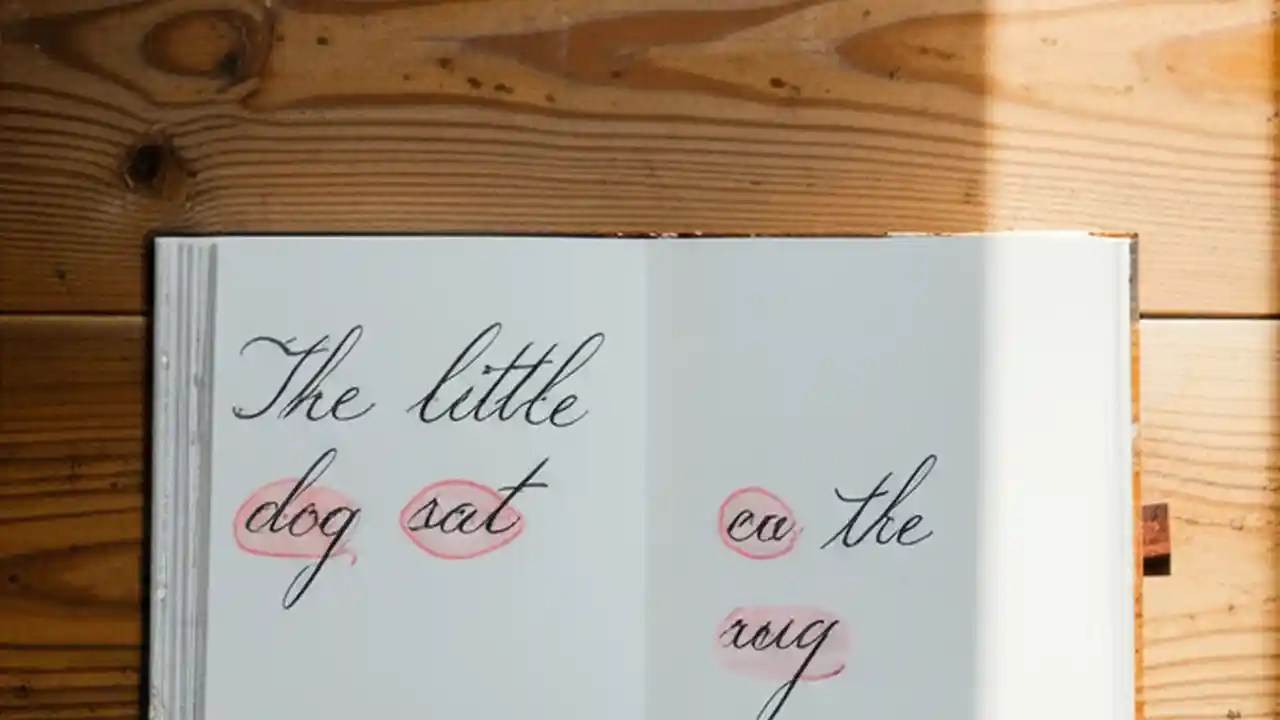 The little
dog sat
the
rug